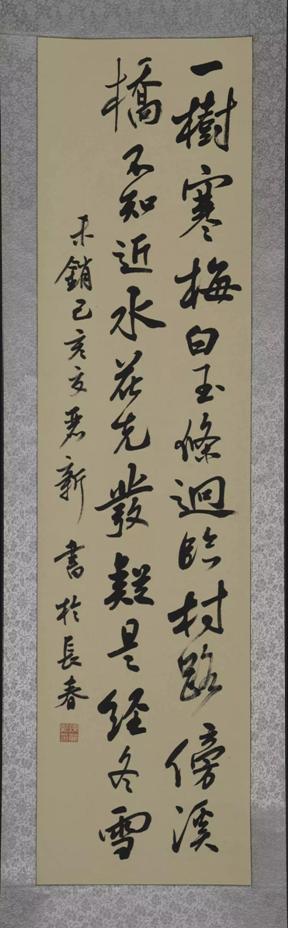 一樹寒梅白玉條迥臨村路傍溪
橋不知近水花先發疑是經冬雪
未銷己亥新書於長春